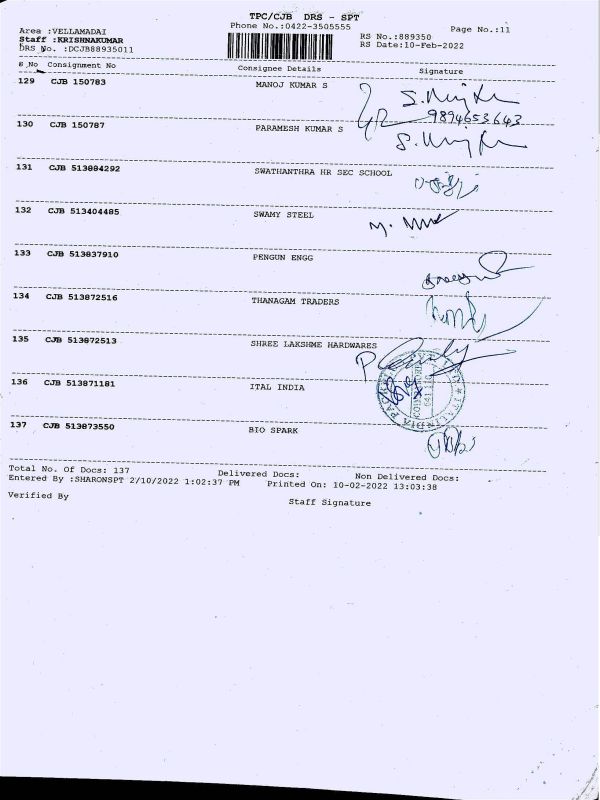 TPC/CJB DRS - SPT
Phone No.:0422-3505555
Page No.:11
Area :VELLAMADAI
Staff :KRISHNAKUMAR
DRS No. :DCJB88935011
RS No.:889350
RS Date:10-Feb-2022
S_No Consignment No Consignee Details Signature
129 CJB 150783 MANOJ KUMAR S
9894653643
130 CJB 150787 PARAMESH KUMAR S
131 CJB 513884292 SWATHANTHRA HR SEC SCHOOL
132 CJB 513404485 SWAMY STEEL
133 CJB 513837910 PENGUN ENGG
134 CJB 513872516 THANAGAM TRADERS
135 CJB 513872513 SHREE LAKSHME HARDWARES
136 CJB 513871181 ITAL INDIA
137 CJB 513873550 BIO SPARK
Total No. Of Docs: 137 Delivered Docs: Non Delivered Docs:
Entered By :SHARONSPT 2/10/2022 1:02:37 PM Printed On: 10-02-2022 13:03:38
Verified By Staff Signature